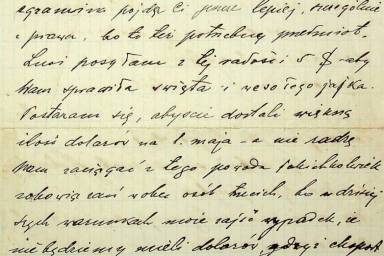 egzamina pójdą Ci jeszcze lepiej, szczególnie
z prawa, bo to też potrzebny przedmiot.
Lusi posyłam z tej radości 5 $ - aby
Wam sprawiła święta - i wesołego jajka.
Postaram się, abyście dostali większą
ilość dolarów na 1. maja - a nie radzę
Wam zaciągać z tego powodu jakichkolwiek
zobowiązań wobec osób trzecich, bo w dzisiej
szych warunkach może zajść wypadek, że
nie będziemy mieli dolarów, gdyż